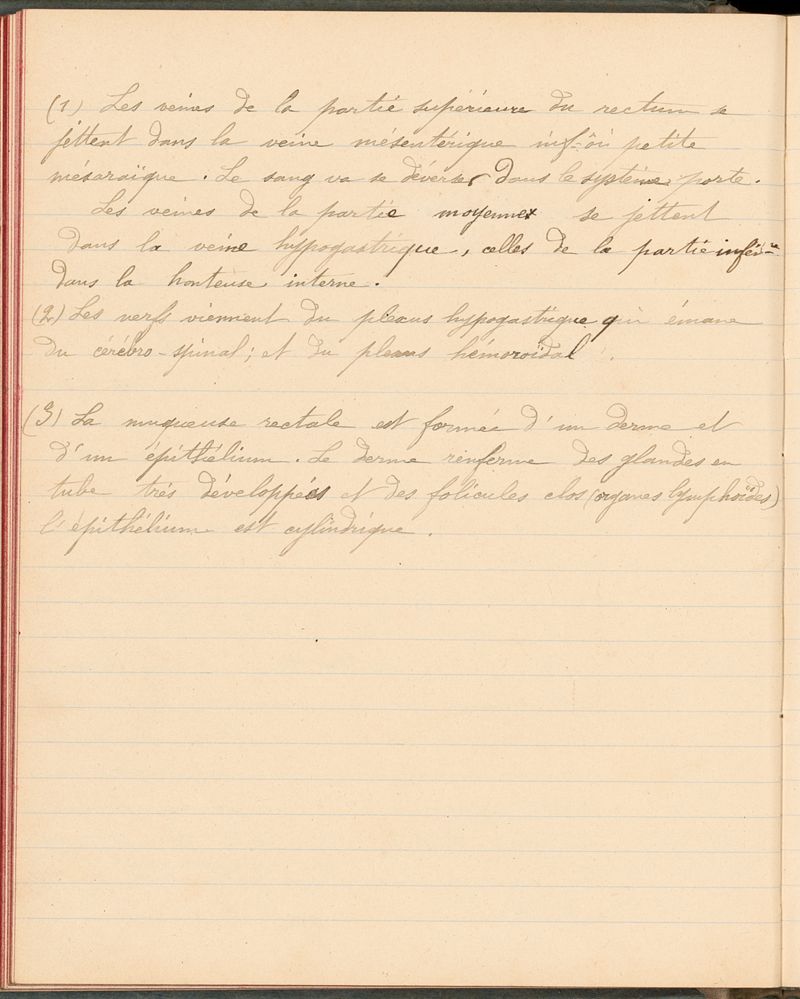 (1) Les veines de la partie supérieure du rectum se
jettent dans la veine mésentérique inf-où petite
mésaraïque. Le sang va se déverser dans le système porte.
Les veines de la partie moyenne se jettent
dans la veine hypogastrique, celles de la partie infér-re
dans la honteuse interne.
(2) Les nerfs viennent du plexus hypogastrique qui émane
du cérébro-spinal; et du plexus hémoroïdal.
(3) La muqueuse rectale est formée d'un derme et
d'un épithélium. Le derme renferme des glandes en
tube très développées et des folicules clos (organes lymphoïdes)
l'épithélium est cylindrique.